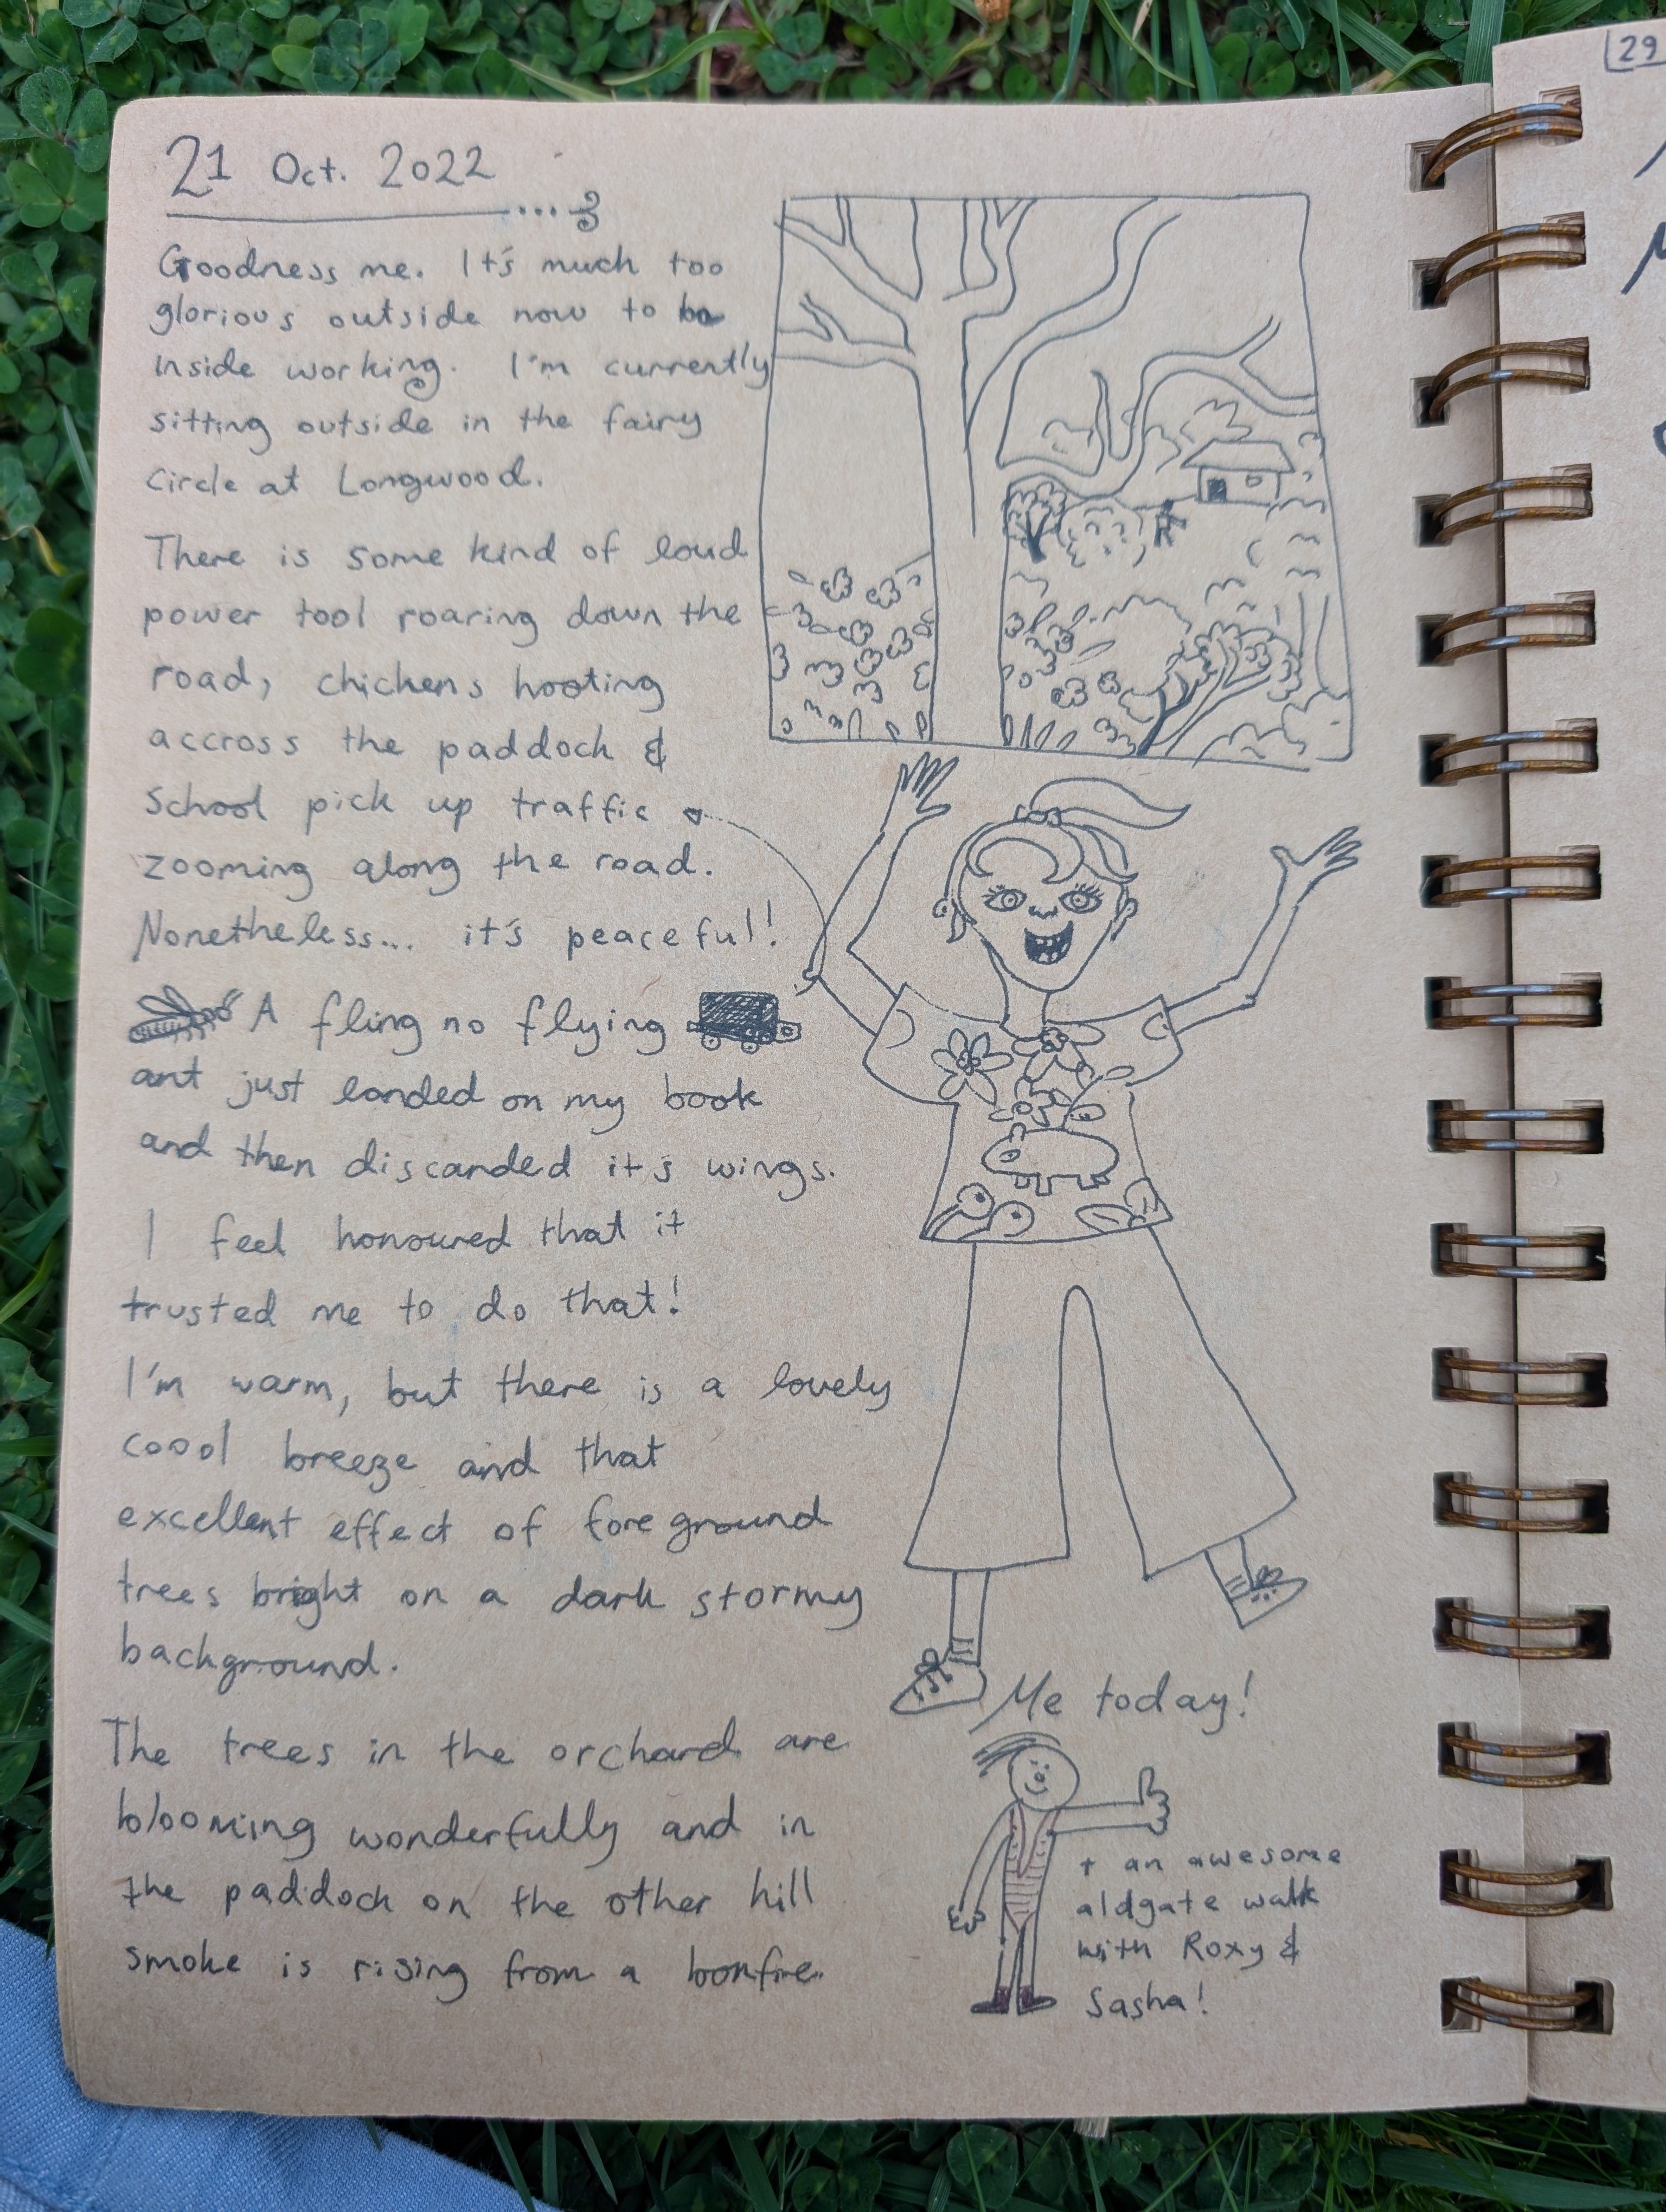 21 Oct. 2022
Goodness me. It's much too
glorious outside now to be
inside working. I'm currently
sitting outside in the fairy
circle at Longwood.
There is some kind of loud
power tool roaring down the
road, chickens hooting
accross the paddock &
school pick up traffic
zooming along the road.
Nonetheless... it's peaceful!
A fling no flying
ant just landed on my book
and then discarded it's wings.
I feel honoured that it
trusted me to do that!
I'm warm, but there is a lovely
coool breeze and that
excellent effect of foreground
trees bright on a dark stormy
background.
The trees in the orchard are
blooming wonderfully and in
the paddock on the other hill
smoke is rising from a bonfire.
Me today!
+ an awesome
aldgate walk
with Roxy &
Sasha!
29